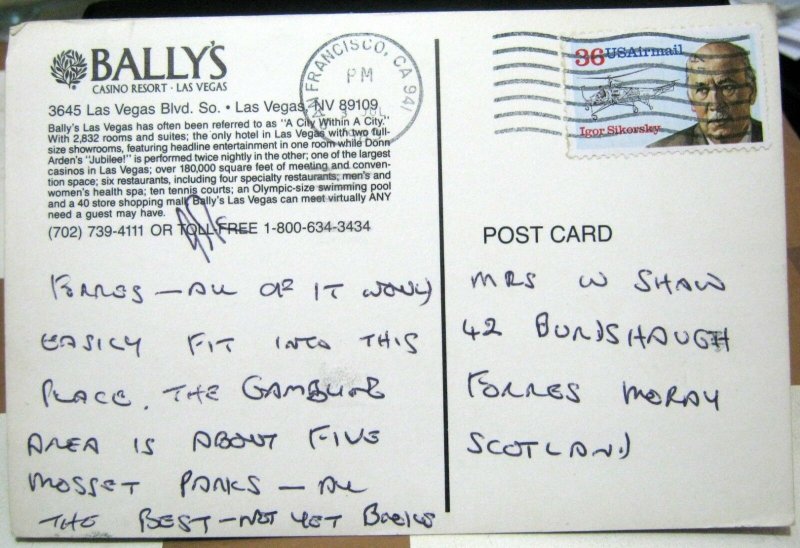 BALLY'S
CASINO RESORT · LAS VEGAS
3645 Las Vegas Blvd. So. • Las Vegas, NV 89109
Bally's Las Vegas has often been referred to as "A City Within A City."
With 2,832 rooms and suites; the only hotel in Las Vegas with two full-
size showrooms, featuring headline entertainment in one room while Donn
Arden's "Jubilee!" is performed twice nightly in the other; one of the largest
casinos in Las Vegas; over 180,000 square feet of meeting and conven-
tion space; six restaurants, including four specialty restaurants; men's and
women's health spa; ten tennis courts; an Olympic-size swimming pool
and a 40 store shopping mall. Bally's Las Vegas can meet virtually ANY
need a guest may have.
(702) 739-4111 OR TOLL-FREE 1-800-634-3434
FORRES — ALL OF IT WOULD
EASILY FIT INTO THIS
PLACE. THE GAMBLING
AREA IS ABOUT FIVE
MOSSET PARKS — ALL
THE BEST — NOT YET BROKE
SAN FRANCISCO, CA 941
PM
36 USAirmail
Igor Sikorsky
POST CARD
MRS W SHAW
42 BURDSHAUGH
FORRES MORAY
SCOTLAND